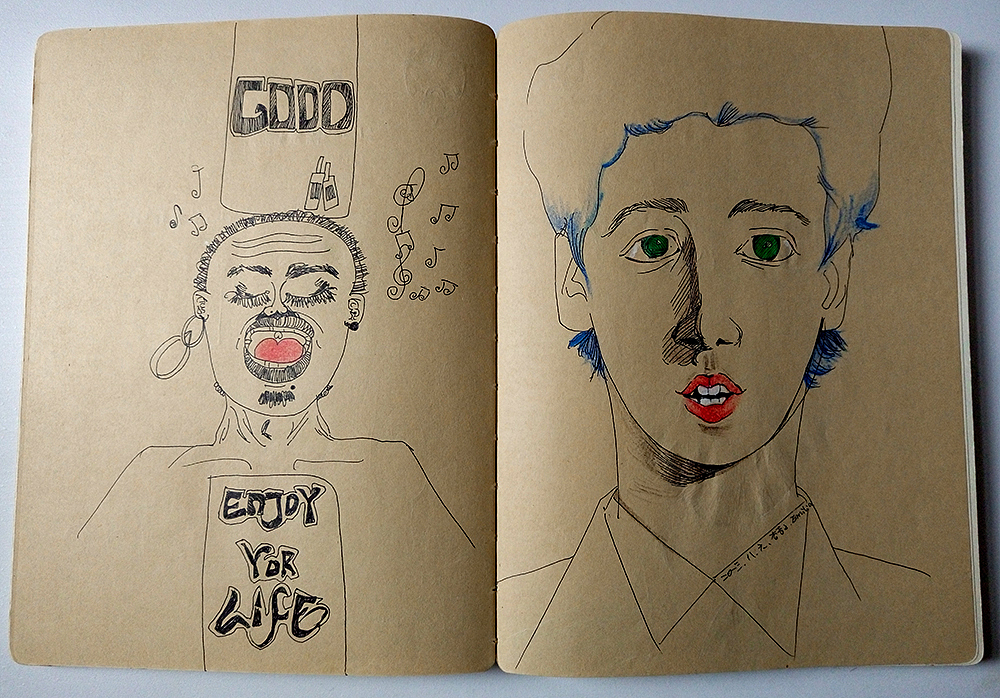 GOOD
ENJOY
YOR
LIFE